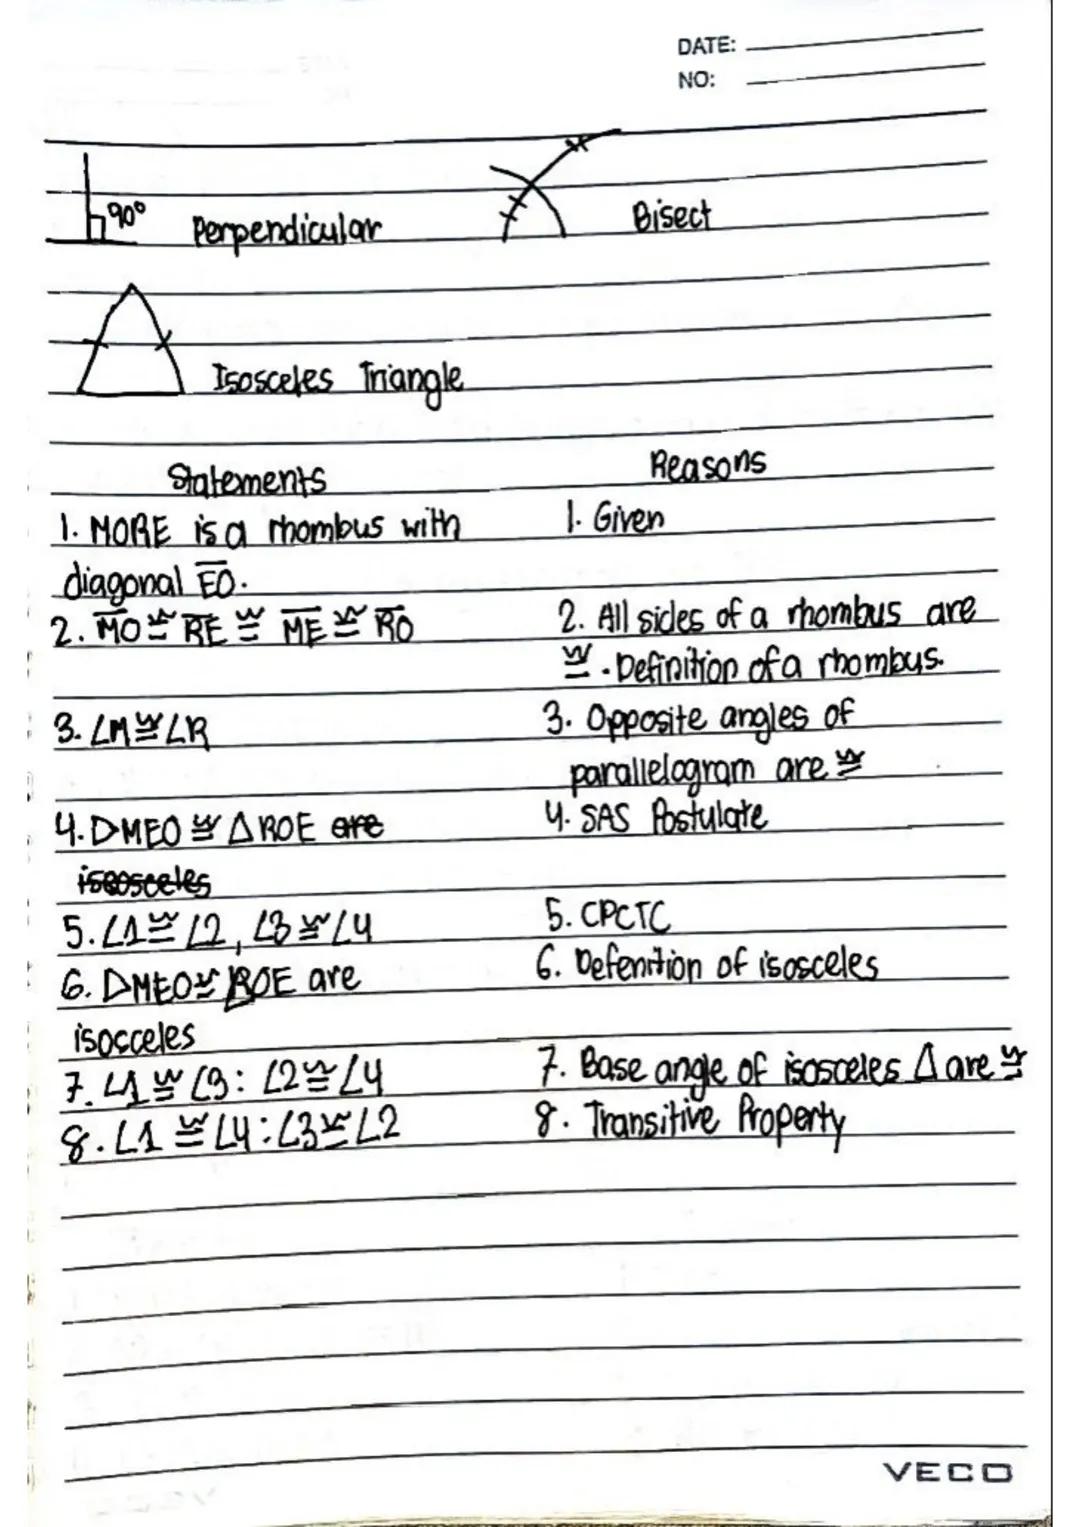 DATE:
NO:
90° Perpendicular Bisect
Isosceles Triangle
Statements Reasons
1. MORE is a rhombus with 1. Given
diagonal E̅O̅.
2. M̅O̅ ≅ R̅E̅ ≅ M̅E̅ ≅ R̅O̅ 2. All sides of a rhombus are
≅. Definition of a rhombus.
3. ∠M ≅ ∠R 3. Opposite angles of
parallelogram are ≅
4. △MEO ≅ △ROE are 4. SAS Postulate
isosceles
5. ∠1 ≅ ∠2, ∠3 ≅ ∠4 5. CPCTC
6. △MEO ≅ △ROE are 6. Defenition of isosceles
isosceles
7. ∠1 ≅ ∠3: ∠2 ≅ ∠4 7. Base angle of isosceles △ are ≅
8. ∠1 ≅ ∠4: ∠3 ≅ ∠2 8. Transitive Property
VECO